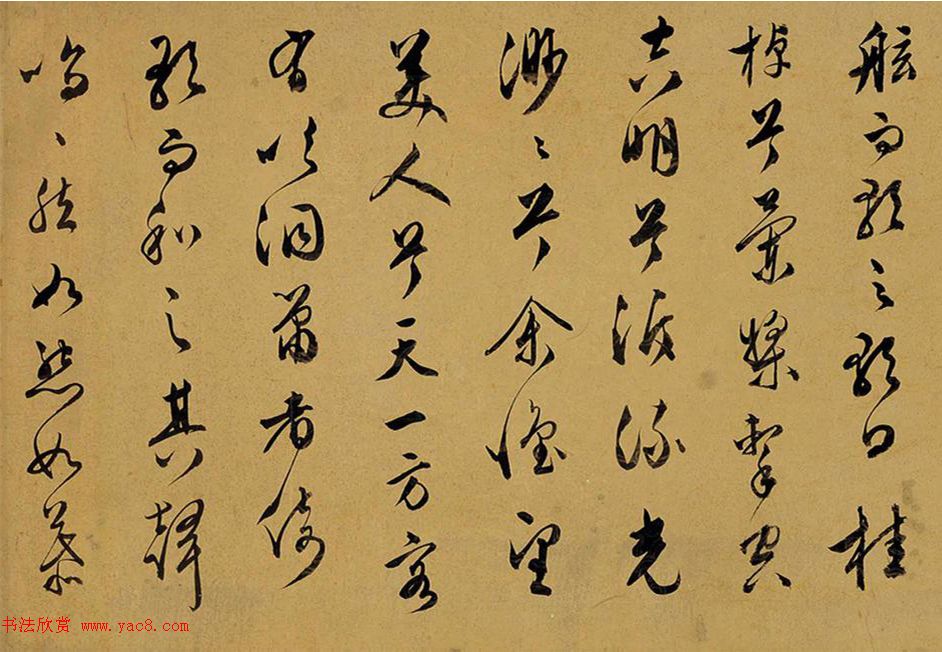 舷而歌之歌曰桂
棹兮蘭槳擊空
明兮泝流光
渺々兮余懷望
美人兮天一方客
有吹洞簫者倚
歌而和之其聲
嗚々然如怨如慕
书法欣赏 www.yac8.com